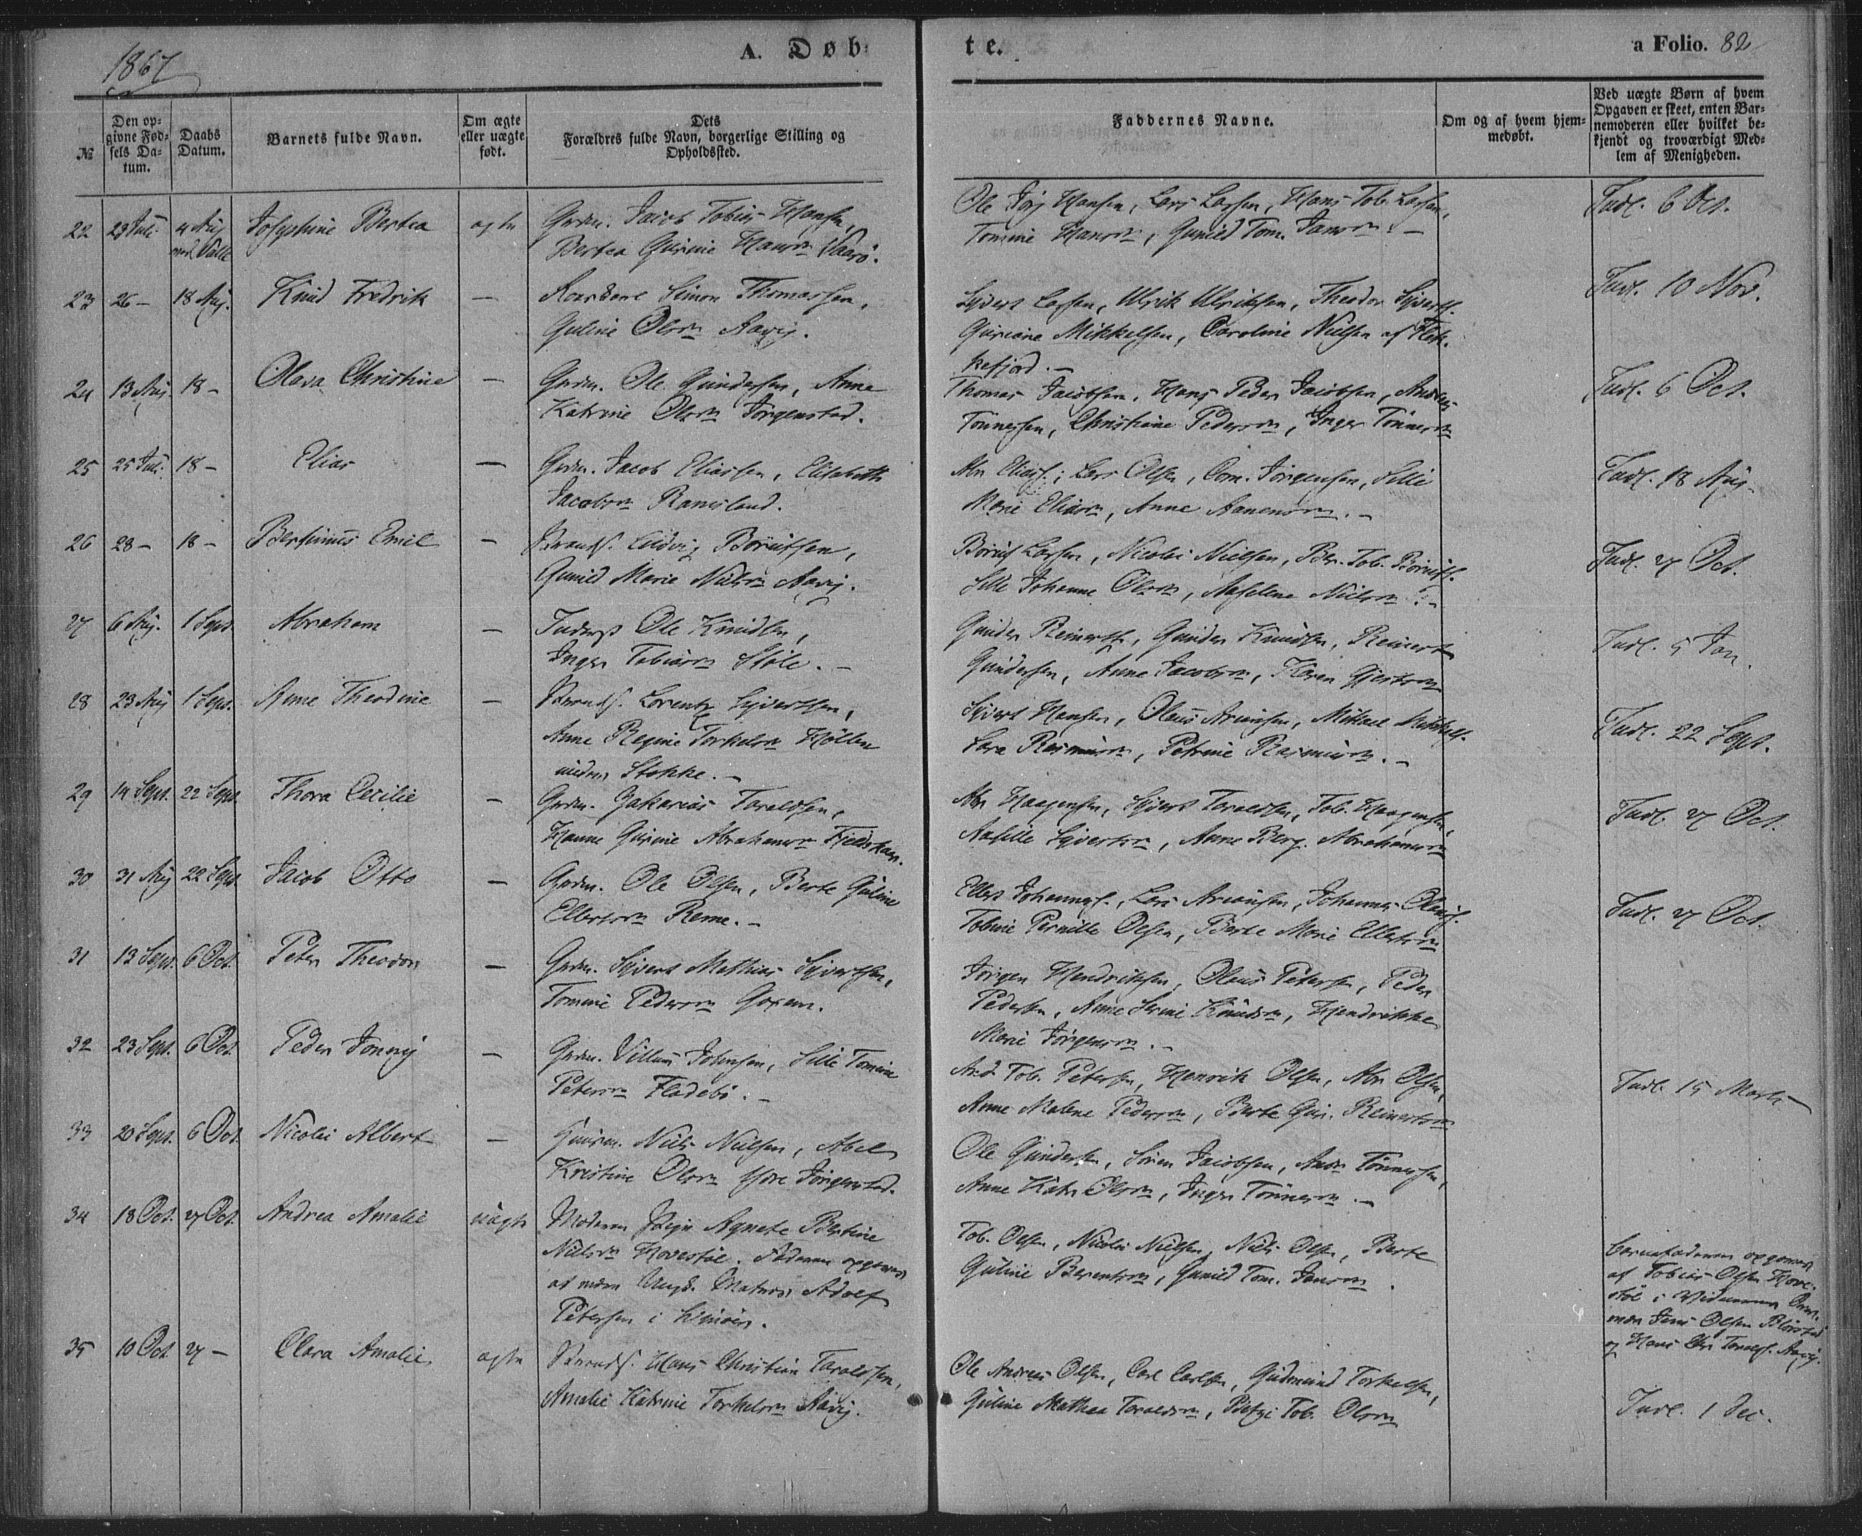 1867
A. Døb-
te.
a Folio. 82
№
Den op-
givne Fød-
sels Da-
tum.
Daabs
Datum.
Barnets fulde Navn.
Om ægte
eller uægte
født.
Dets
Forældres fulde Navn, borgerlige Stilling og
Opholdssted.
Faddernes Navne.
Om og af hvem hjem-
medøbt.
Ved uægte Børn af hvem
Opgaven er skeet, enten Bar-
nemoderen eller hvilket be-
kjendt og troværdigt Med-
lem af Menigheden.
22 29 Juli 4 Aug Josephine Bertea ægte Grdm. Jacob Tobias Hansen,
Bertea Gurine Hansn Vaarø.
Ole Jørg Hansen, Lars Larsen, Hans Tob. Larsen,
Tomine Hansn, Gunild Tom. Jansn. —
Indl. 6 Oct.
23 26 — 18 Aug. Knud Fredrik — Simon Thomassen,
Guline Olsn Aavig.
Syvert Larsen, Ulrik Ulriksen, Theodor Syverts.
Guriane Mikkelsen, Caroline Nielsen af Flek-
kefjord. —
Indl. 10 Nov.
24 13 Aug. 18 — Olava Christine — Grdm. Ole Gundersen, Anne
Katrine Olsn Jørgenstad.
Thomas Jacobsen, Hans Peder Jacobsen, Andreas
Tønnessen, Christine Pedersn, Inger Tønnesn
Indl. 6 Oct.
25 25 Juli 18 — Elias — Grdm. Jacob Eliassen, Elisabeth
Jacobsn Ramsland.
Abr. Elias., Lars Olsen, Corn. Jørgensen, Sille
Marie Eliasn, Anne Aanensn. —
Indl. 18 Aug.
26 28 — 18 — Bertinius Emil — Strands. Ludvig Børufsen,
Gunild Marie Nielsn Aavig.
Børuf Larsen, Nicolai Nielsen, Ber. Tob. Børufs.
Sille Johanne Olsn, Aaselene Nielsn. —
Indl. 27 Oct.
27 6 Aug. 1 Sept. Abraham — Inderst Ole Knudsen,
Inger Tobiasn Støle. —
Gunder Reinertsen, Gunder Knudsen, Reinert
Gundersen, Anne Jacobsn, Karen Gjertsn
Indl. 5 Jan.
28 23 Aug 1 Sept. Anne Theodine — Strands. Lorentz Syvertsen,
Anne Regine Torkelsn Hellen
under Stokke. —
Syvert Hansen, Olaus Ariansen, Mikael Mikkels.
Lava Rasmusn, Petrine Rasmusn. —
Indl. 22 Sept.
29 14 Sept. 22 Sept. Thora Cecilie — Grdm. Zakarias Taraldsen,
Hanne Gurine Abrahamsn Fjeldskaar.
Abr Haagensen, Syvert Taraldsen, Tob. Haagensen,
Aasille Syvertsn, Anne Berg. Abrahamsn
Indl. 27 Oct.
30 31 Aug 22 Sept Jacob Otto — Grdm. Ole Olsen, Berte Guline
Ellertsn Reme. —
Ellert Johannes., Lars Ariansen, Johannes
Tobine Pernille Olsen, Berte Marie Ellertsn
Indl. 27 Oct.
31 13 Sept. 6 Oct. Peter Theodor — Grdm. Syvert Mathias Syvertsen,
Tomine Pedersn Goxem.
Jørgen Hendriksen, Olaus Petersen, Peder
Pedersen, Anne Serine Knudsn, Hendrikke
Marie Jørgensn. —
32 23 Sept. 6 Oct. Peder Jonny — Grdm. Villum Johnsen, Sille Tomine
Petersn Fladebø. —
And. Tob. Petersen, Henrik Olsen, Abr. Olsen,
Anne Malene Pedersn, Berte Gur. Reinertsn
Indl. 15 Marts
33 20 Sept. 6 Oct. Nicolai Albert — Niels Nielsen, Abel
Kristine Olsn Ydre Jørgenstad.
Ole Gundersen, Søren Jacobsen, Andr. Tønnessen,
Anne Katr. Olsn, Inger Tønnesn —
34 18 Oct. 27 Oct. Andrea Amalie uægte Moderen Agnete Bertine
Nielsn Hovestøl. Faderen opgiven
at være Ungk. Matros Adolf
Petersen i
Tob. Olsen, Nicolai Nielsen, Niels Olsen, Berte
Guline Berentsn, Gunild Tom. Jansn.
Barnefaderen opgiven
af Tobias Olsen Hove-
støl i
Jens Olsen
og Hans Chr. Tønnes. Aavig.
35 10 Oct 27 — Clara Amalie ægte Strands. Hans Christian Taraldsen,
Amalie Katrine Torkelsn Aavig.
Ole Andreas Olsen, Carl Carlsen, Gudmund Torkelsen,
Guline Mathea Taraldsn, Tob. Olsn
Indl. 1 Dec.